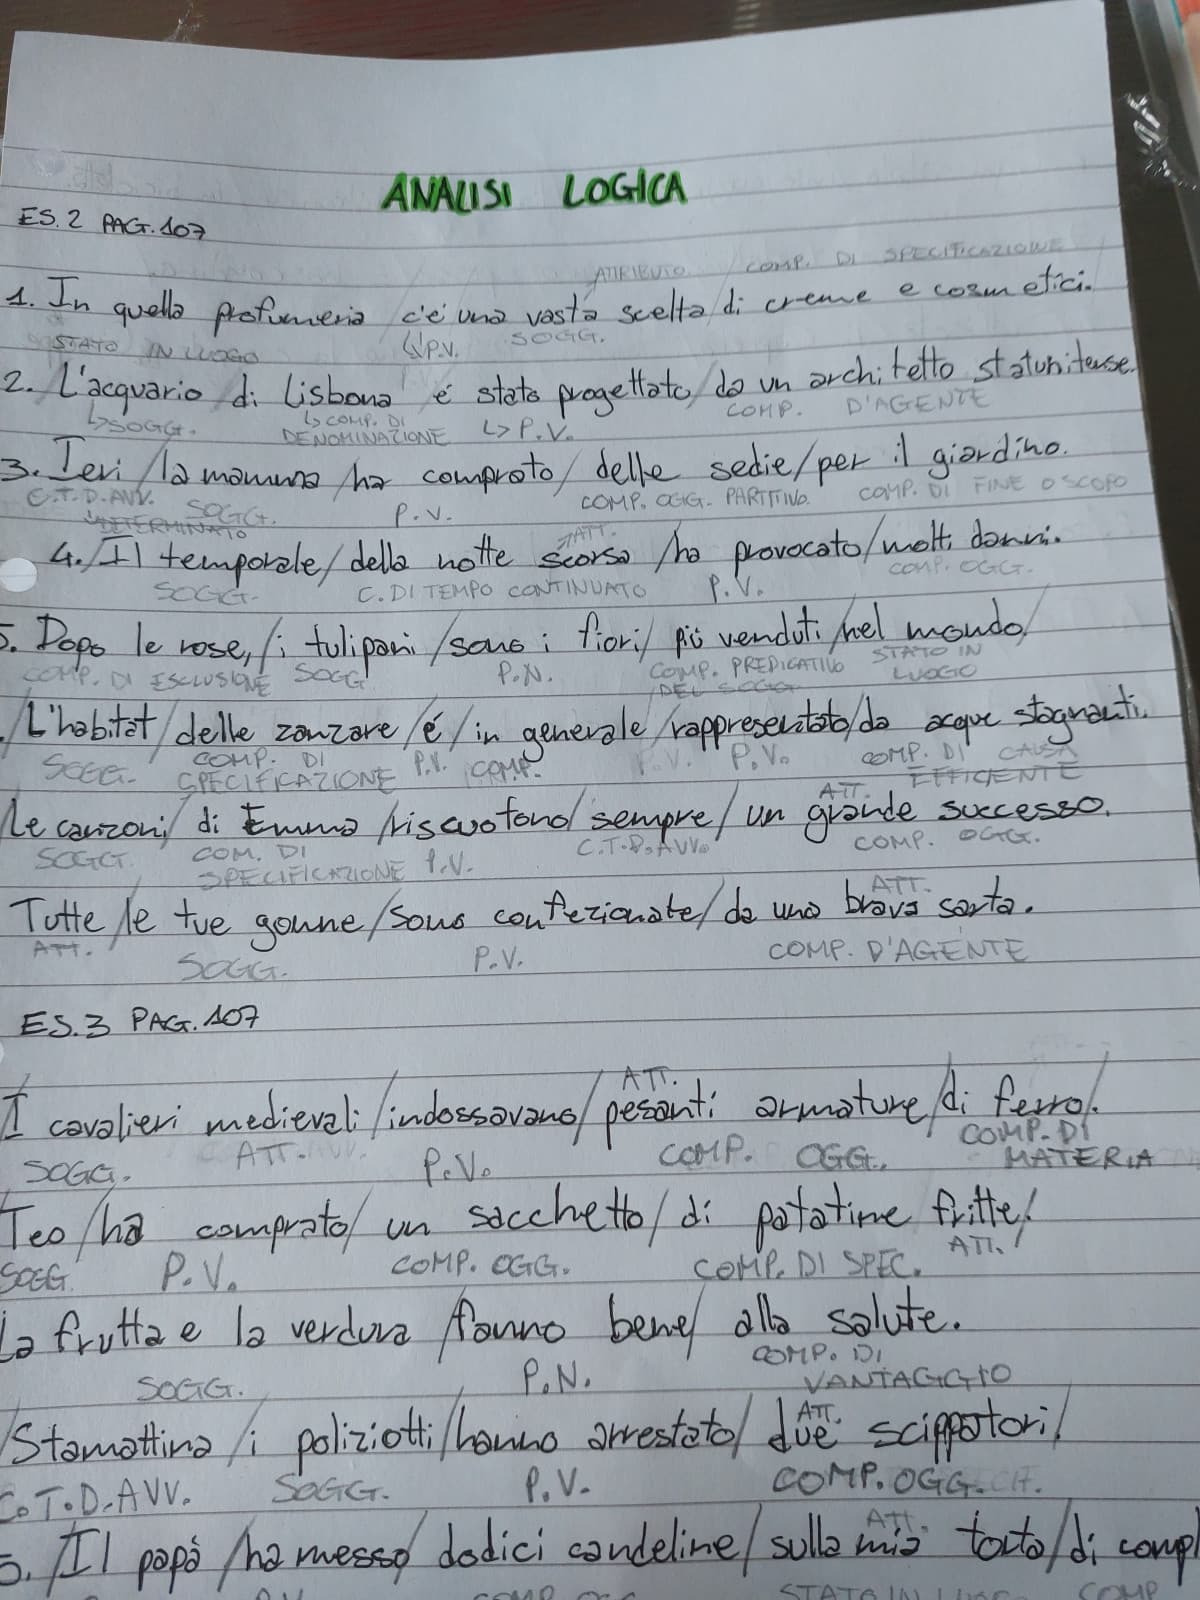 ANALISI LOGICA
ES.2 PAG.107
ATTRIBUTO / COMP. DI SPECIFICAZIONE
1. In quella profumeria c'é una vasta scelta/di creme e cosmetici.
STATO IN LUOGO P.V. SOGG.
2. L'acquario/di Lisbona é stato progettato/da un architetto statunitense.
SOGG. COMP. DI DENOMINAZIONE P.V. COMP. D'AGENTE
3. Ieri/la mamma/ha comprato/delle sedie/per il giardino.
C.T.D.AVV. SOGG. P.V. COMP. OGG. PARTITIVO COMP. DI FINE O SCOPO
DETERMINATO ATT.
4./Il temporale/della notte scorsa/ha provocato/molti danni.
SOGG. C. DI TEMPO CONTINUATO P.V. COMP. OGG.
5. Dopo le rose,/i tulipani/sono i fiori/più venduti/nel mondo/
COMP. DI ESCLUSIONE SOGG P.N. COMP. PREDICATIVO DEL SOGG STATO IN LUOGO
. L'habitat/delle zanzare/é/in generale/rappresentato/da acque stagnanti.
SOGG. COMP. DI SPECIFICAZIONE P.V. COMP. P.V. P.V. COMP. DI CAUSA EFFICIENTE
ATT.
Le canzoni/di Emma/riscuotono/sempre/un grande successo.
SOGG. COM. DI SPECIFICAZIONE P.V. C.T.D.AVV. COMP. OGG.
ATT.
Tutte/le tue gonne/sono confezionate/da una brava sarta.
ATT. SOGG. P.V. COMP. D'AGENTE
ES.3 PAG.107
ATT.
I cavalieri medievali/indossavano/pesanti armature/di ferro/.
SOGG. ATT. P.V. COMP. OGG. COMP. DI MATERIA
Teo/ha comprato/un sacchetto/di patatine fritte/
SOGG. P.V. COMP. OGG. COMP. DI SPEC. ATT.
La frutta e la verdura/fanno bene/alla salute.
SOGG. P.N. COMP. DI VANTAGGIO
ATT.
/Stamattina/i poliziotti/hanno arrestato/due scippatori/
C.T.D.AVV. SOGG. P.V. COMP.OGG.
ATT.
5./Il papà/ha messo/dodici candeline/sulla mia torta/di compl
P.V. COMP OGG STATO IN LUOG COMP